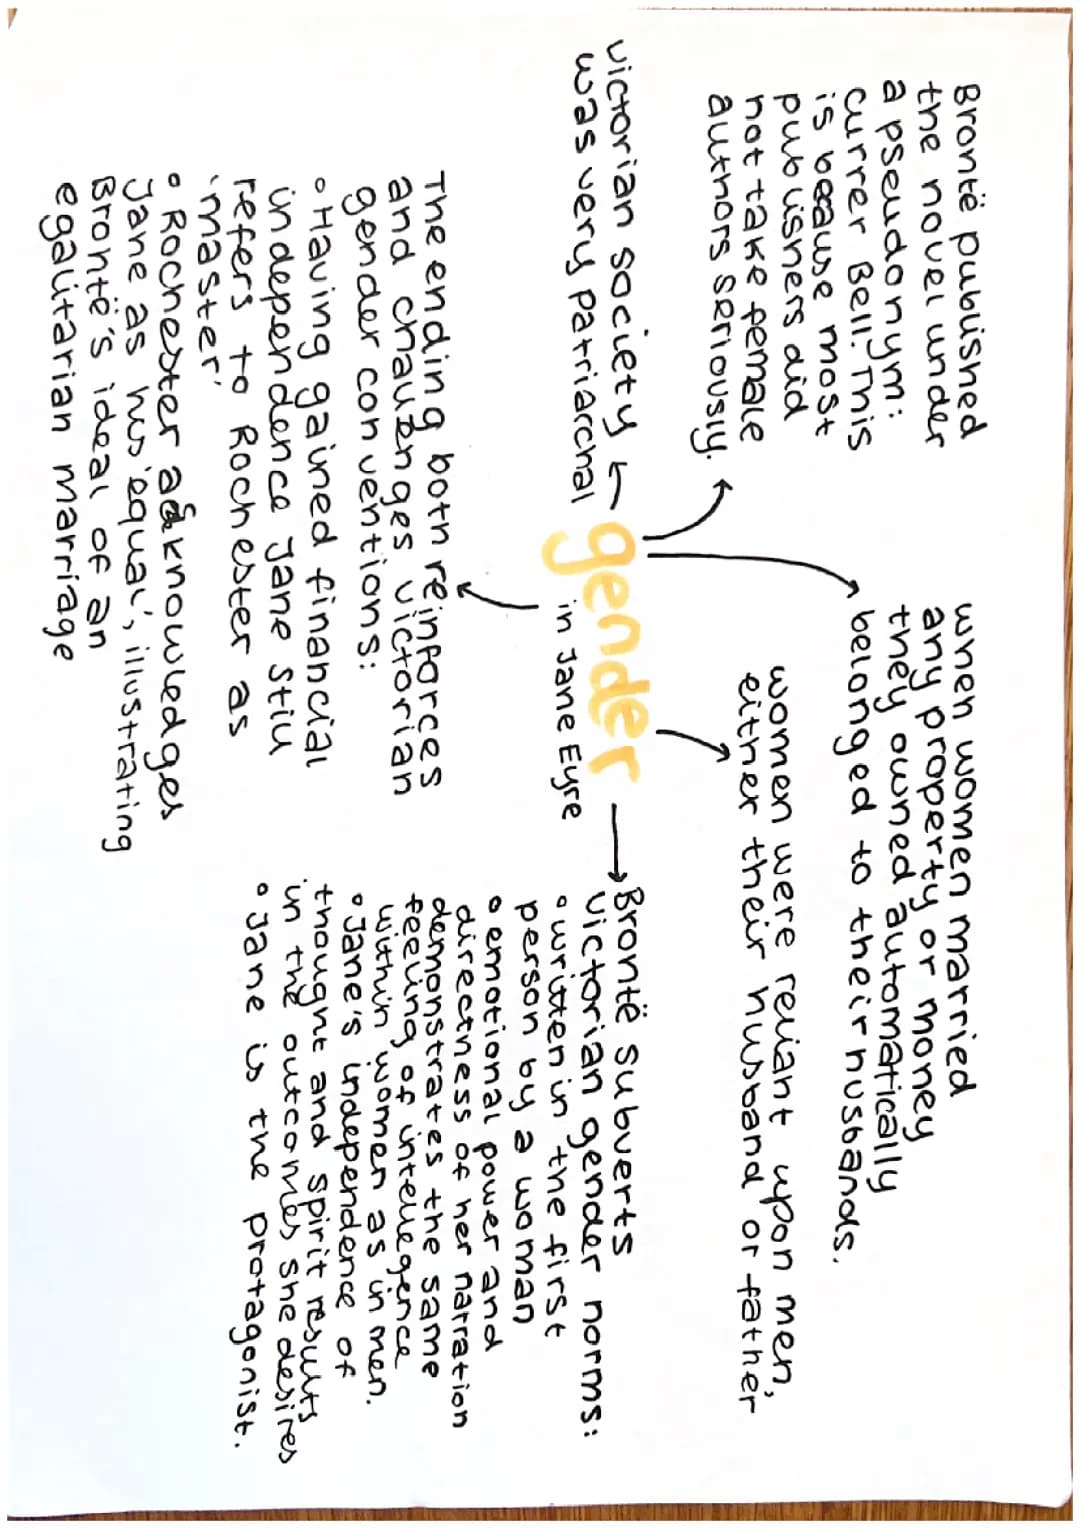 Brontë published
the novel under
a pseudonym:
Currer Bell. This
is because most
publishers did
not take female
authors seriously.
when women married
any property or money
they owned automatically
belonged to their husbands.
women were reliant upon men,
either their husband or father
Victorian society
was very patriarchal
gender
in Jane Eyre
Brontë subverts
Victorian gender norms:
• written in the first
person by a woman
• emotional power and
directness of her narration
demonstrates the same
feeling of intelligence
within women as in men.
• Jane's independence of
thought and spirit results
in the outcomes she desires
• Jane is the protagonist.
The ending both reinforces
and challenges Victorian
gender conventions:
• Having gained financial
independence Jane still
refers to Rochester as
'master'
• Rochester acknowledges
Jane as his 'equal', illustrating
Brontë's ideal of an
egalitarian marriage